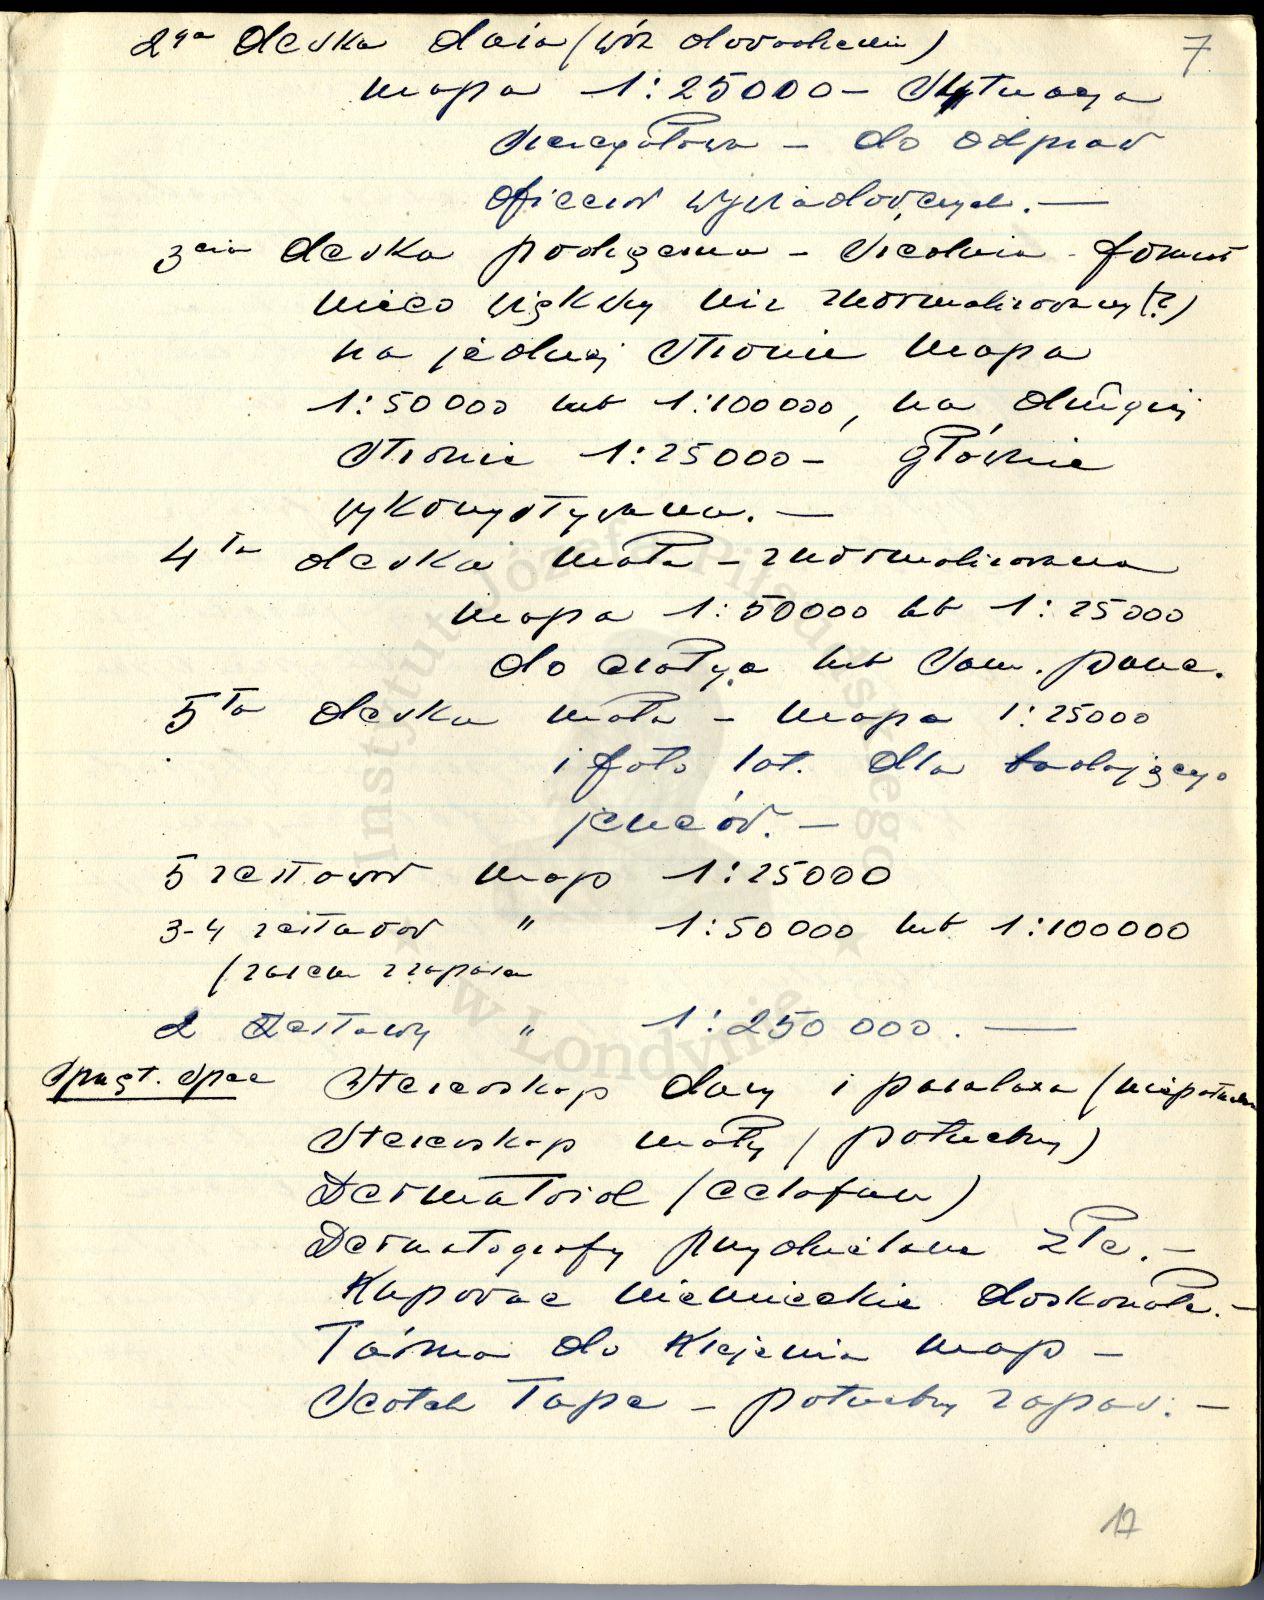 7
2ga deska duża (wóz dowodzenia)
mapa 1:25000 – Sytuacja
szczegółowa – do odpraw
oficerów wywiadowczych. —
3cia deska podręczna – średnia – format
nieco większy niż znormalizowany (?)
na jednej stronie mapa
1:50000 lub 1:100000, na drugiej
stronie 1:25000 – głównie
wykorzystywana. —
4ta deska mała – znormalizowana
mapa 1:50000 lub 1:25000
do czołga lub sam. panc.
5ta deska mała – mapa 1:25000
i foto lot. dla badającego
jeńców. —
5 zestawów map 1:25000
3-4 zestawów " 1:50000 lub 1:100000
(razem z zapasem
2 zestawy " 1:250 000. —
Sprzęt. spec Stereoskop duży i paralaxa (niepotrzebny
Stereoskop mały (potrzebny)
Dermatoid (celofan)
Dermatografy przydzielane złe. –
Kupować niemieckie doskonałe. –
Taśma do klejenia map –
Scotch Tape – potrzebny zapas. –
17
Instytut Józefa Piłsudskiego
w Londynie